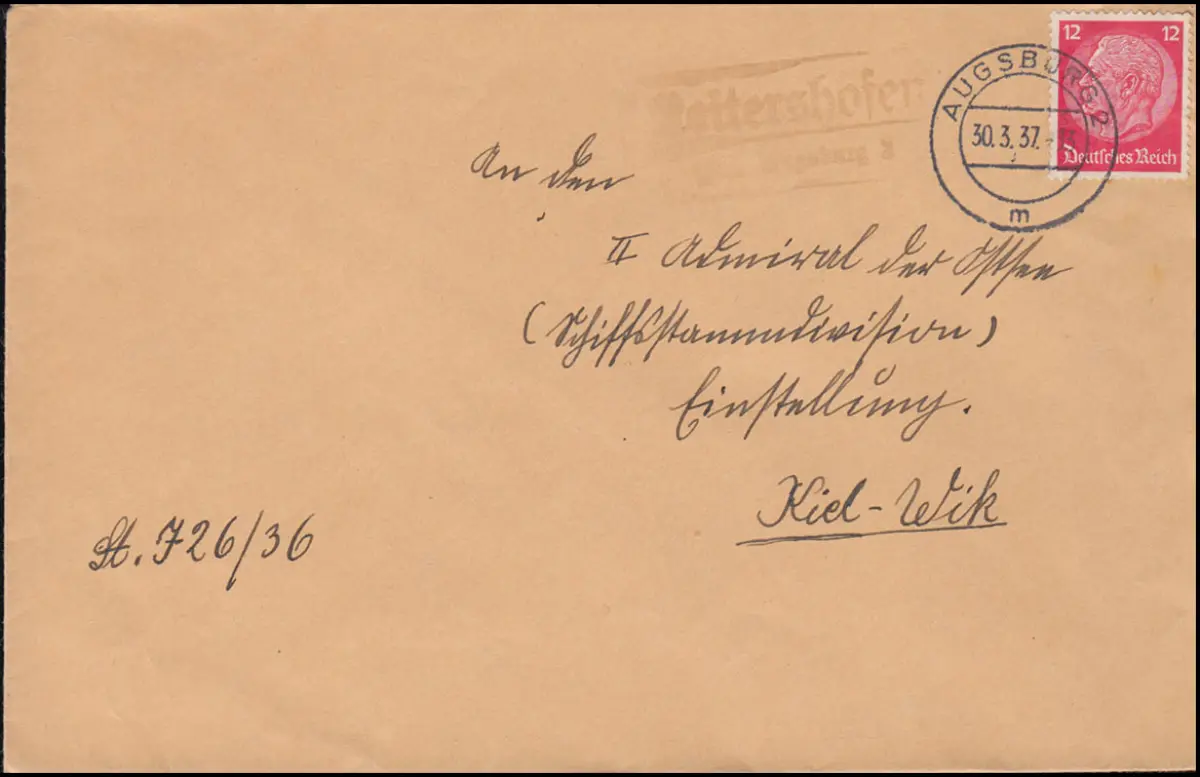 12 12
Deutsches Reich
AUGSBURG 2
30.3.37.
m
Leitershofen
Augsburg 2
An den
II Admiral der Ostsee
(Schiffsstammdivision)
Einstellung.
Kiel-Wik
St. 726/36